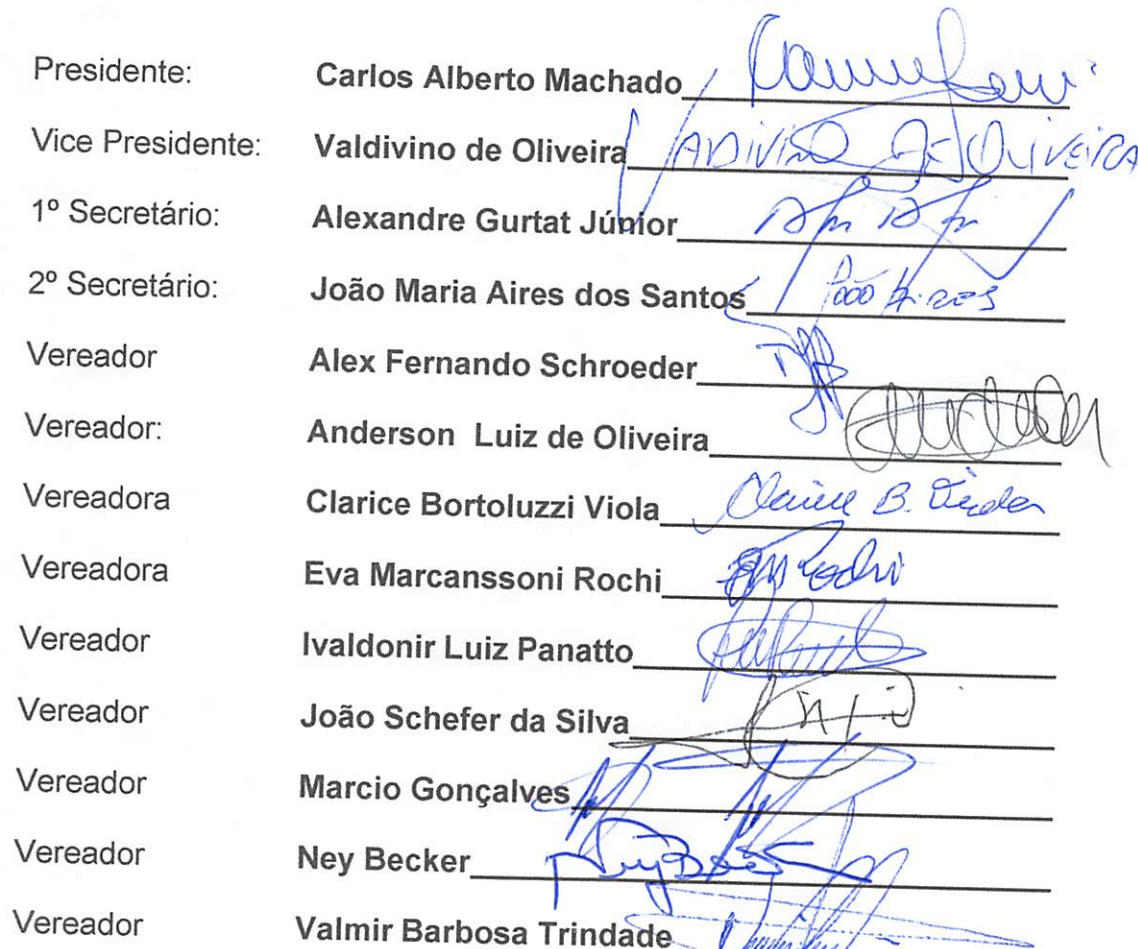 Presidente: Carlos Alberto Machado
Vice Presidente: Valdivino de Oliveira VADIVINO DE OLIVEIRA
1º Secretário: Alexandre Gurtat Júnior
2º Secretário: João Maria Aires dos Santos João Aires
Vereador Alex Fernando Schroeder
Vereador: Anderson Luiz de Oliveira
Vereadora Clarice Bortoluzzi Viola
Vereadora Eva Marcanssoni Rochi
Vereador Ivaldonir Luiz Panatto
Vereador João Schefer da Silva
Vereador Marcio Gonçalves
Vereador Ney Becker
Vereador Valmir Barbosa Trindade